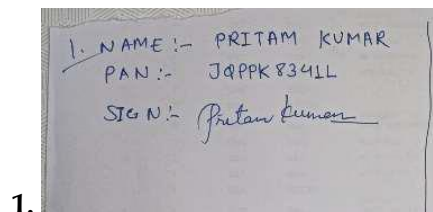 1. NAME :- PRITAM KUMAR
PAN :- JQPPK8341L
SIGN :- Pritam Kumar
1.